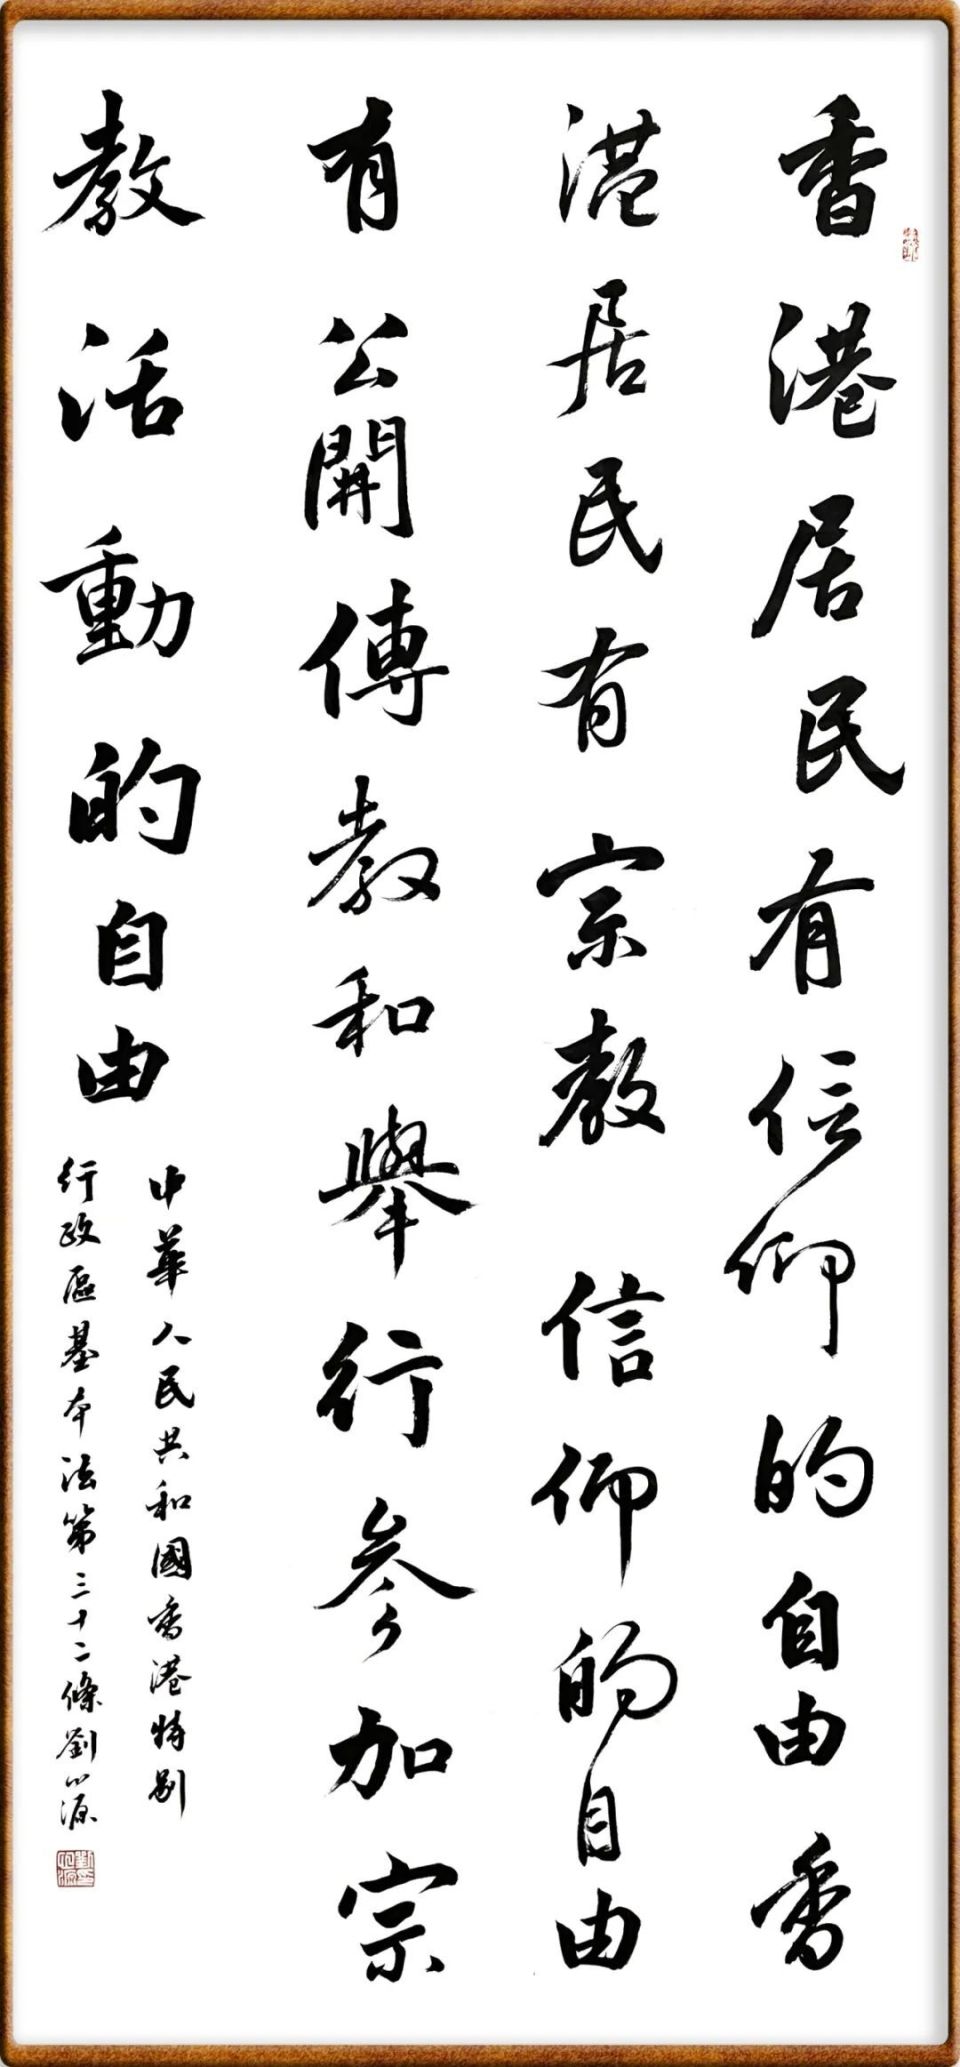 香港居民有信仰的自由香
港居民有宗教信仰的自由
有公開傳教和舉行参加宗
教活動的自由
中華人民共和國香港特别
行政區基本法第三十二條劉心源